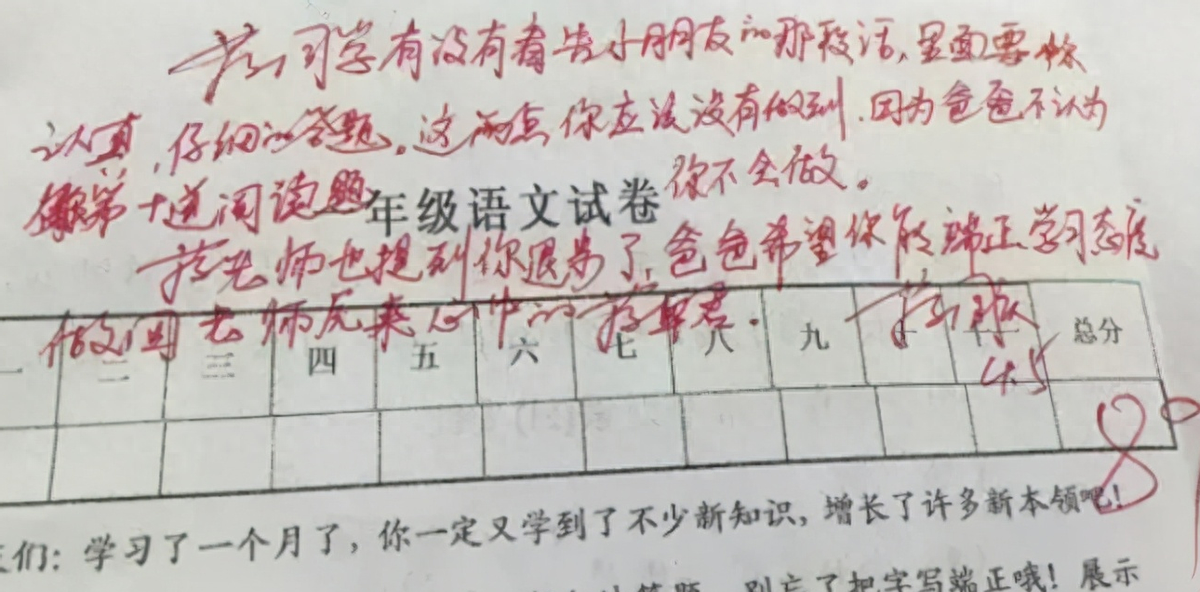 蒋同学有没有看告小朋友的那段话,里面要你
认真,仔细的答题。这两点你应该没有做到.因为爸爸不认为
第十道阅读题 你不会做。
年级语文试卷
蒋老师也提到你退步了,爸爸希望你能端正学习态度
做回老师原来心中的蒋
二 三 四 五 六 七 八 九 十 总分
4.5
8
们:学习了一个月了,你一定又学到了不少新知识,增长了许多新本领吧!
答题,别忘了把字写端正哦!展示